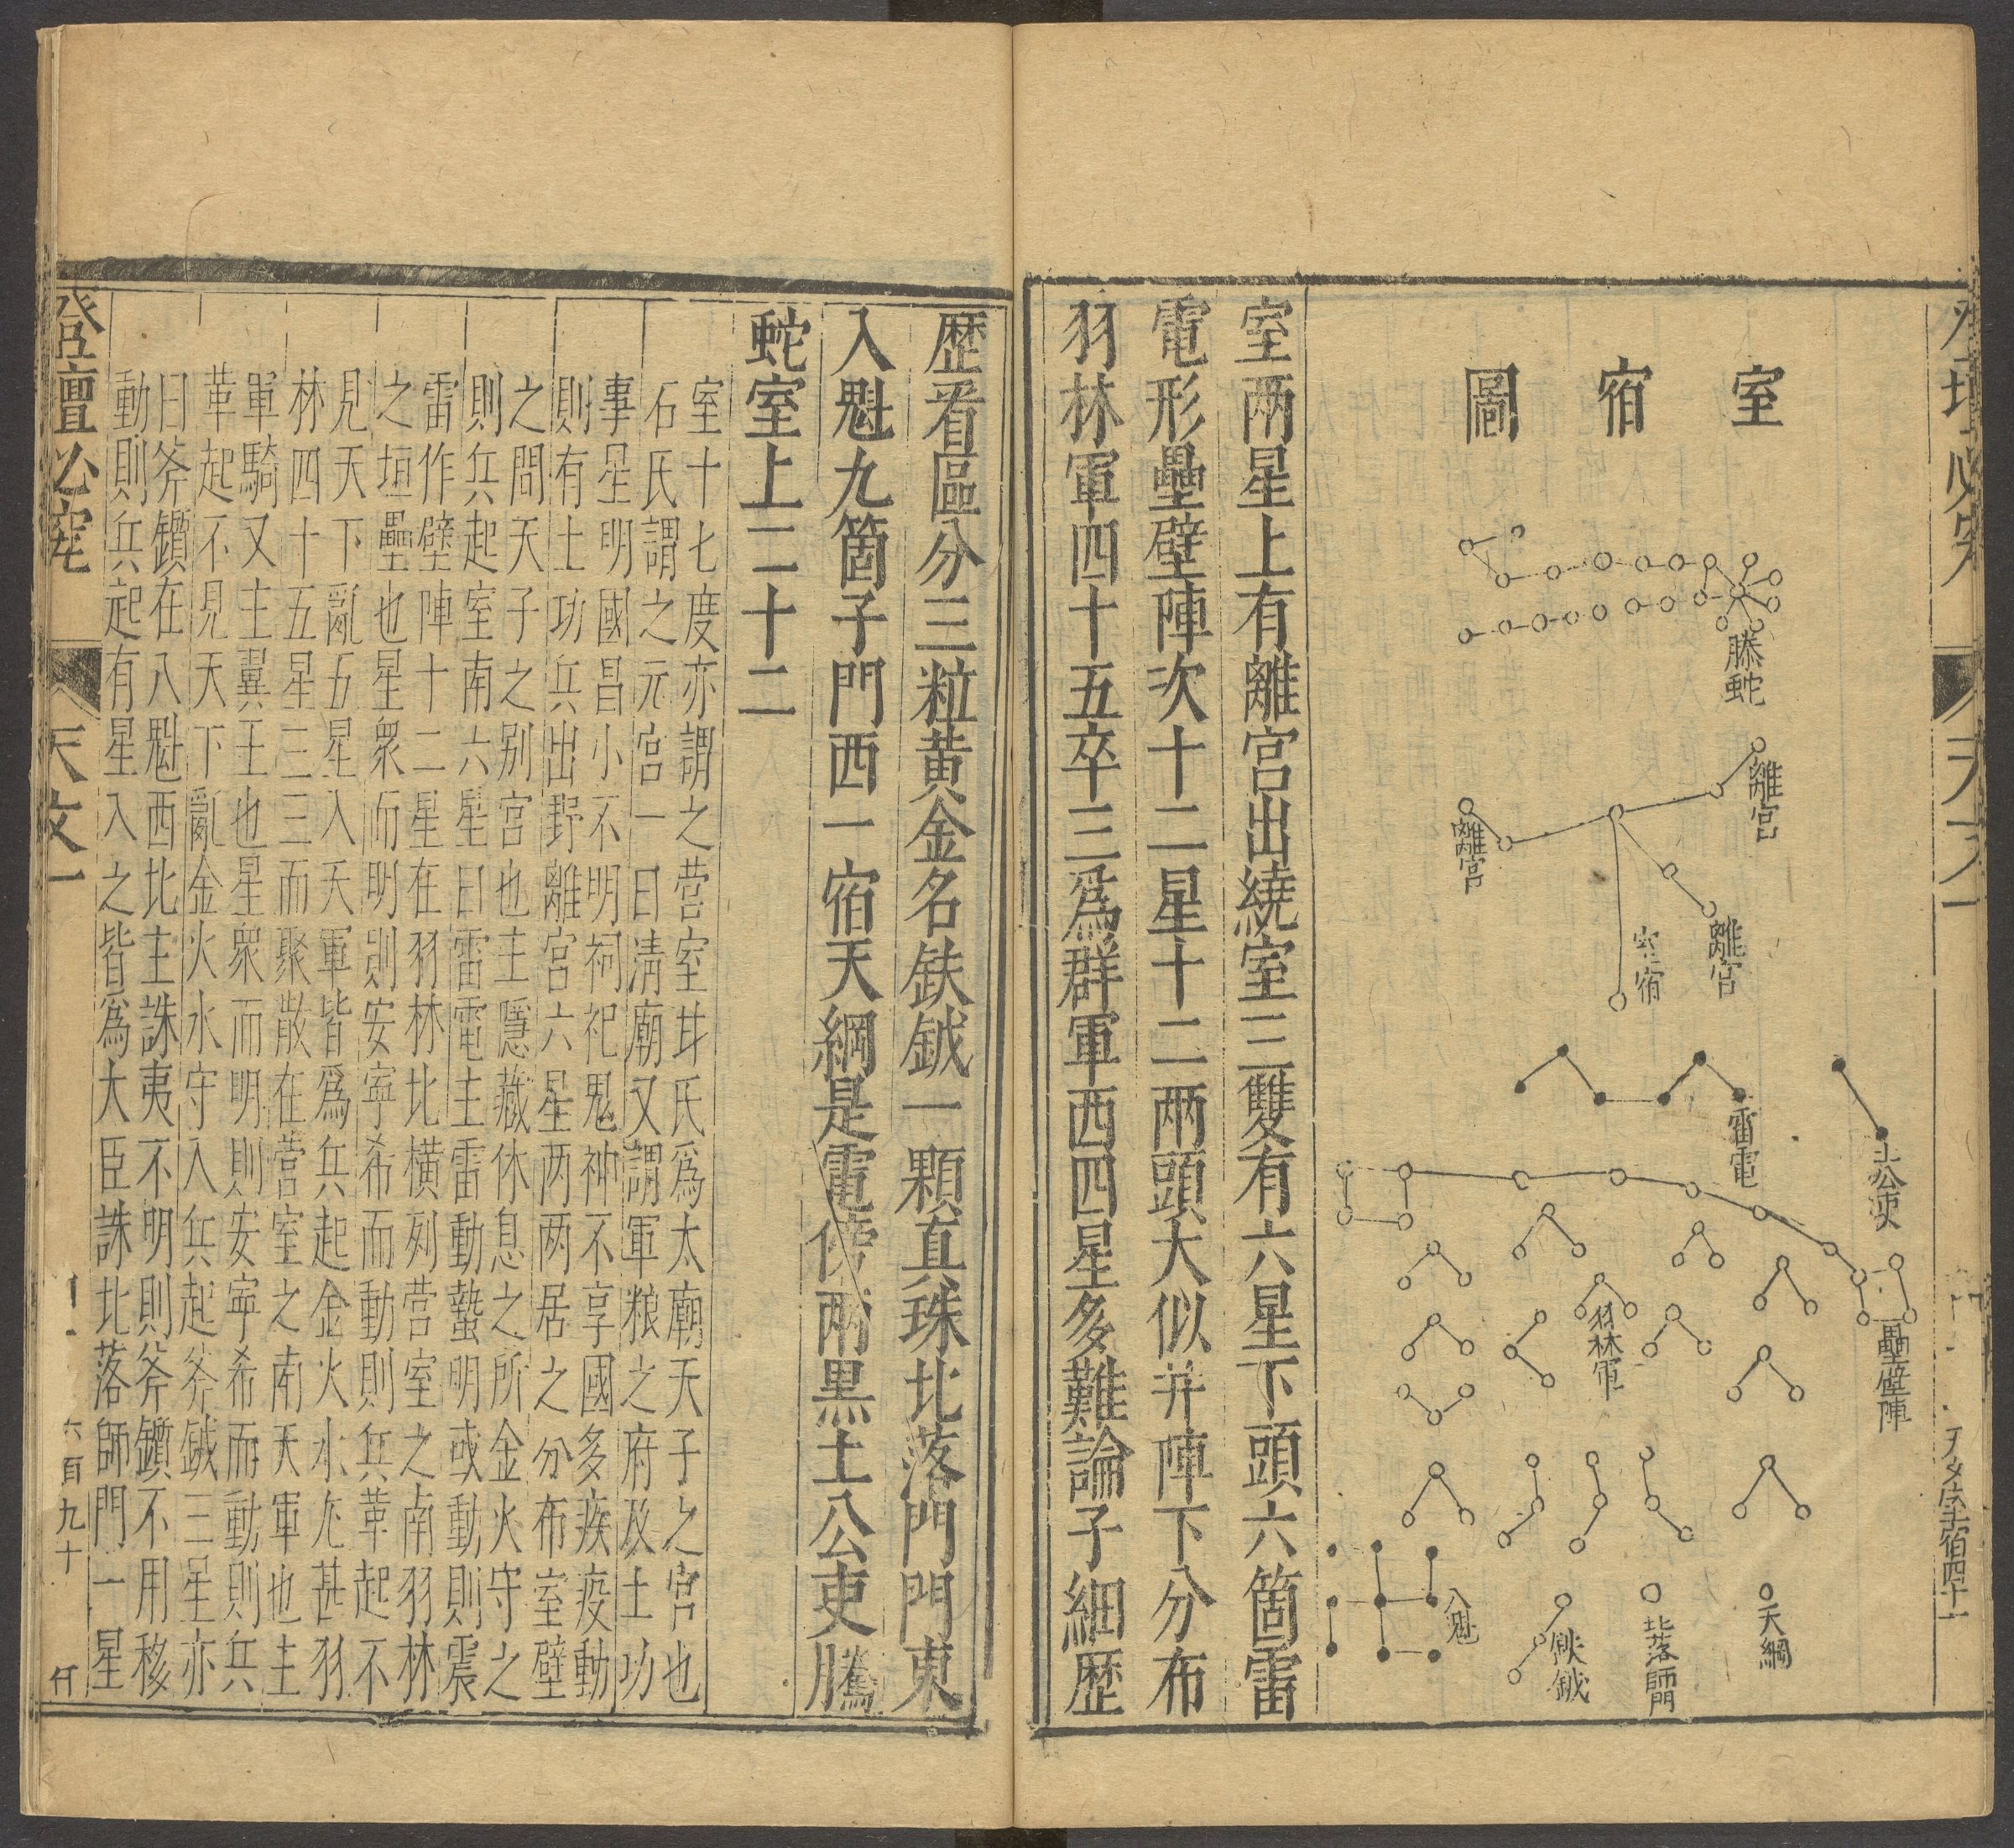 天文一
室宿圖
螣蛇
離宮
離宮
離宮
室宿
雷電
土公吏
羽林軍
壘壁陣
八魁
鈇鉞
北落師門
天綱
室兩星上有離宮出繞室三雙有六星下頭六箇雷
電形壘壁陣次十二星十二兩頭大似井陣下分布
羽林軍四十五卒三爲群軍西四星多難論子細歷
歷看區分三粒黃金名鈇鉞一顆真珠北落門門東
八魁九箇子門西一宿天綱是電傍兩黒土公吏騰
蛇室上二十二
室十七度亦謂之营室甘氏爲太廟天子之宮也
石氏謂之元宮一曰清廟又謂軍粮之府及土功
事星明國昌小不明祠祀鬼神不享國多疾疫動
則有土功兵出野離宮六星两两居之分布室壁
之間天子之别宮也主隱藏休息之所金火守之
則兵起室南六星曰雷電主雷動蟄明或動則震
雷作壁陣十二星在羽林北橫列营室之南羽林
之垣壘也星衆而明則安寜希而動則兵革起不
見天下亂五星入天軍皆爲兵起金火水尢甚羽
林四十五星三三而聚散在营室之南天軍也主
軍騎又主翼王也星衆而明則安寜希而動則兵
革起不見天下亂金火水守入兵起斧鉞三星亦
曰斧鑕在八魁西北主誅夷不明則斧鑕不用移
動則兵起有星入之皆爲大臣誅北落師門一星
登壇必究
天文一
六百九十